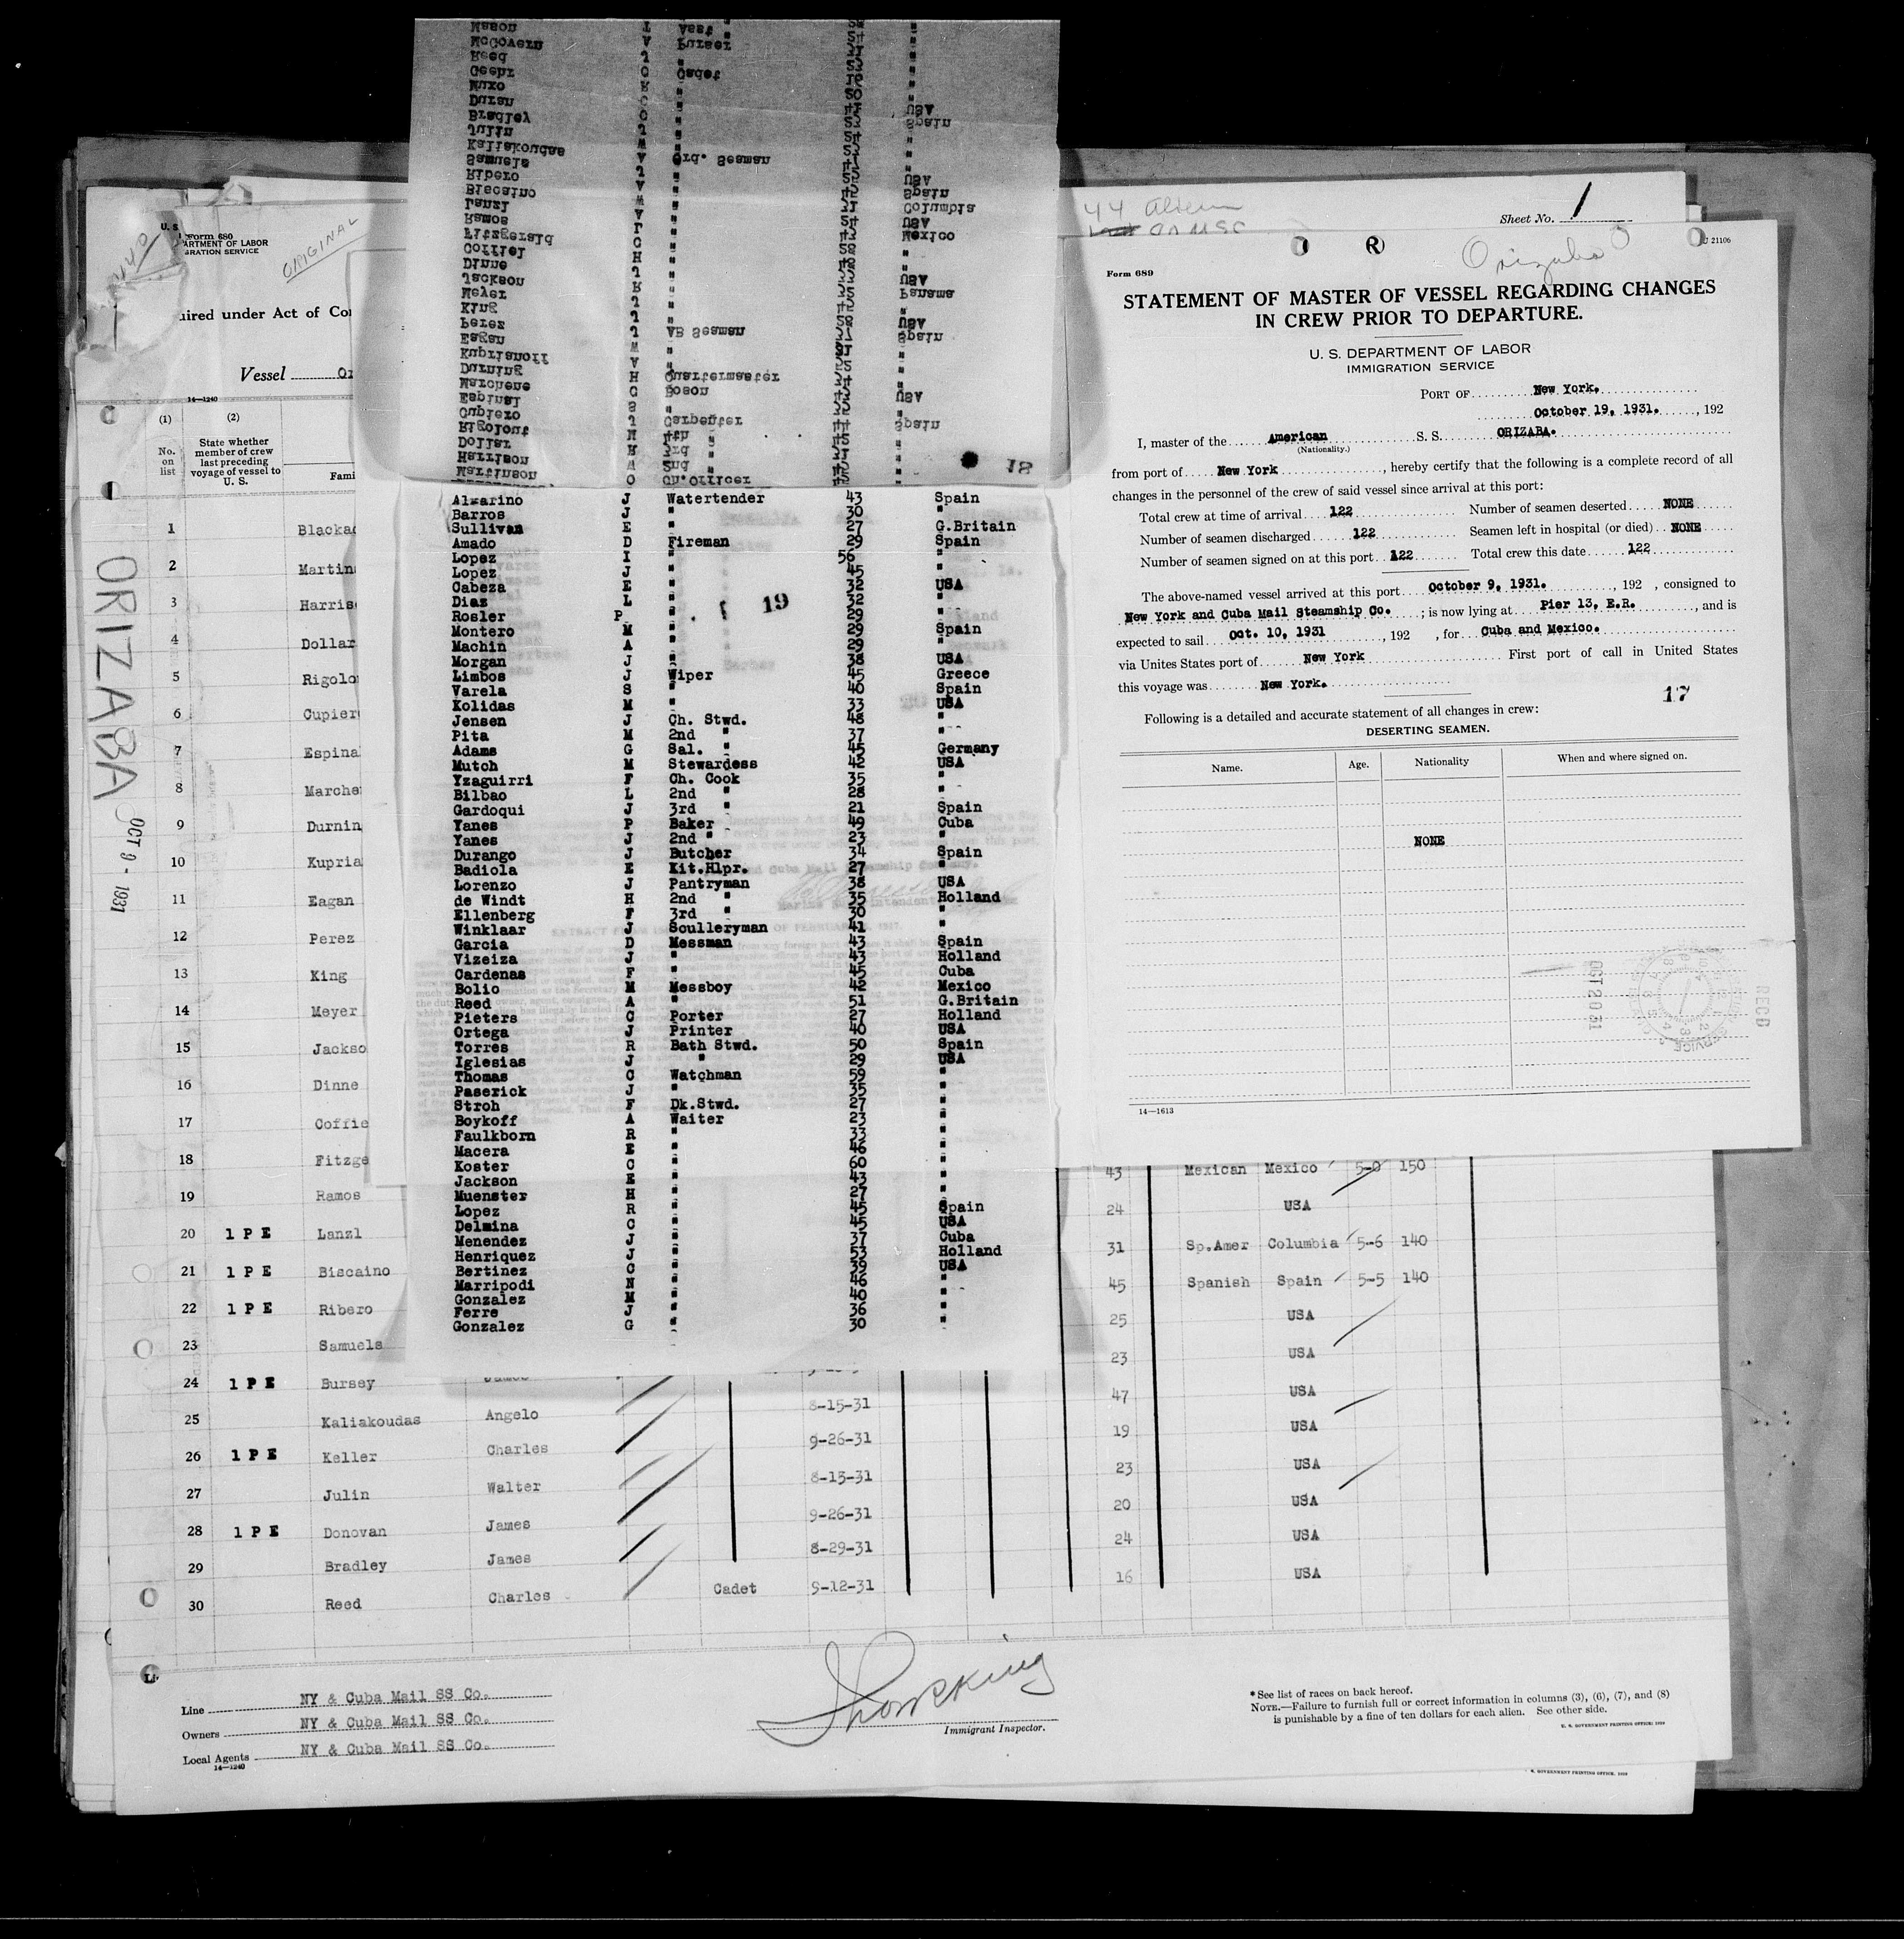 U. S.
Form 680
ARTMENT OF LABOR
GRATION SERVICE
ORIGINAL
uired under Act of Co
Vessel Or
14—1240
(1)
(2)
No. on list
State whether member of crew last preceding voyage of vessel to U. S.
Fami
ORIZABA
OCT 9 - 1931
1 Blackad
2 Martin
3 Harris
4 Dollar
5 Rigolo
6 Cupier
7 Espina
8 Marche
9 Durnin
10 Kupria
11 Eagan
12 Perez
13 King
14 Meyer
15 Jackso
16 Dinne
17 Coffie
18 Fitzge
19 Ramos
20 1 P E Lanzl
21 1 P E Biscaino
22 1 P E Ribero
23 Samuels
24 1 P E Bursey James
25 Kaliakoudas Angelo 8-15-31
26 1 P E Keller Charles 9-26-31
27 Julin Walter 8-15-31
28 1 P E Donovan James 9-26-31
29 Bradley James 8-29-31
30 Reed Charles Cadet 9-12-31
43 Mexican Mexico 5-0 150
24 USA
31 Sp.Amer Columbia 5-6 140
45 Spanish Spain 5-5 140
25 USA
23 USA
47 USA
19 USA
23 USA
20 USA
24 USA
16 USA
Line NY & Cuba Mail SS Co.
Owners NY & Cuba Mail SS Co.
Local Agents NY & Cuba Mail SS Co.
14—1240
Immigrant Inspector.
* See list of races on back hereof.
NOTE.—Failure to furnish full or correct information in columns (3), (6), (7), and (8)
is punishable by a fine of ten dollars for each alien. See other side.
Mason T Asst "
McGovern A Purser
Reed J "
Geehr O Cadet
Muxo R "
Duran C "
Bradley O " USA
Julin J " Spain
Kaliakoudas W "
Samuels A Ord. Seaman
Ribero J " USA
Biscaino A " Spain
Lanzl W " Columbia
Ramos A " USA
Fitzgerald J " Mexico
Coffiel C "
Dinne H "
Jackson J " USA
Meyer R " Panama
King J "
Perez J " USA
Eagan J AB Seaman Spain
Kuprianoff W "
Durning A "
Marchene H Quartermaster
Espinal G Boson USA
Cupiero S "
Rigolout J Carpenter Spain
Dollar M 4th "
Harrison H 3rd "
Martinson W 2nd "
O Ch.Officer
18
Alvarino J Watertender 43 Spain
Barros J " 30 "
Sullivan E " 27 G.Britain
Amado D Fireman 29 Spain
Lopez I " 56 "
Lopez J " 45 "
Cabeza E " 32 USA
Diaz L " 32 "
Rosler P " 29 "
19
Montero M " 29 Spain
Machin A " 29 "
Morgan J " 38 USA
Limbos J Wiper 45 Greece
Varela S " 40 Spain
Kolidas M " 33 USA
Jensen J Ch. Stwd. 48 "
Pita M 2nd " 37 "
Adams G Sal. " 45 Germany
Mutch M Stewardess 42 USA
Yzaguirri F Ch. Cook 35 "
Bilbao L 2nd " 28 "
Gardoqui J 3rd " 21 Spain
Yanes P Baker 49 Cuba
Yanes J 2nd " 23 "
Durango J Butcher 34 Spain
Badiola E Kit.Hlpr. 27 "
Lorenzo J Pantryman 38 USA
de Windt H 2nd " 35 Holland
Ellenberg F 3rd " 30 "
Winklaar J Sculleryman 41 "
Garcia D Messman 43 Spain
Vizeiza J " 43 Holland
Cardenas F " 45 Cuba
Bolio M Messboy 42 Mexico
Reed A " 51 G.Britain
Pieters C Porter 27 Holland
Ortega J Printer 40 USA
Torres R Bath Stwd. 50 Spain
Iglesias J " 29 USA
Thomas C Watchman 59 "
Paserick J " 35 "
Stroh F Dk.Stwd. 27 "
Boykoff A Waiter 23 "
Faulkborn R " 33 "
Macera E " 46 "
Koster C " 60 "
Jackson E " 43 "
Muenster H " 27 "
Lopez R " 45 Spain
Delmina C " 45 USA
Menendez J " 37 Cuba
Henriquez J " 53 Holland
Bertinez C " 39 USA
Marripodi N " 46 "
Gonzalez M " 40 "
Ferre J " 36 "
Gonzalez G " 30 "
44 alien
Sheet No. 1
R
Orizaba
J 21106
Form 689
STATEMENT OF MASTER OF VESSEL REGARDING CHANGES
IN CREW PRIOR TO DEPARTURE.
U. S. DEPARTMENT OF LABOR
IMMIGRATION SERVICE
PORT OF New York.
October 19, 1931. , 192
I, master of the American S. S. ORIZABA.
(Nationality.)
from port of New York , hereby certify that the following is a complete record of all
changes in the personnel of the crew of said vessel since arrival at this port:
Total crew at time of arrival 122 Number of seamen deserted NONE
Number of seamen discharged 122 Seamen left in hospital (or died) NONE
Number of seamen signed on at this port 122 Total crew this date 122
The above-named vessel arrived at this port October 9, 1931. , 192 , consigned to
New York and Cuba Mail Steamship Co. ; is now lying at Pier 13, E.R. , and is
expected to sail Oct. 10, 1931 , 192 , for Cuba and Mexico.
via Unites States port of New York First port of call in United States
this voyage was New York.
17
Following is a detailed and accurate statement of all changes in crew:
DESERTING SEAMEN.
Name. Age. Nationality When and where signed on.
NONE
OCT 20 31
RECD
14—1613